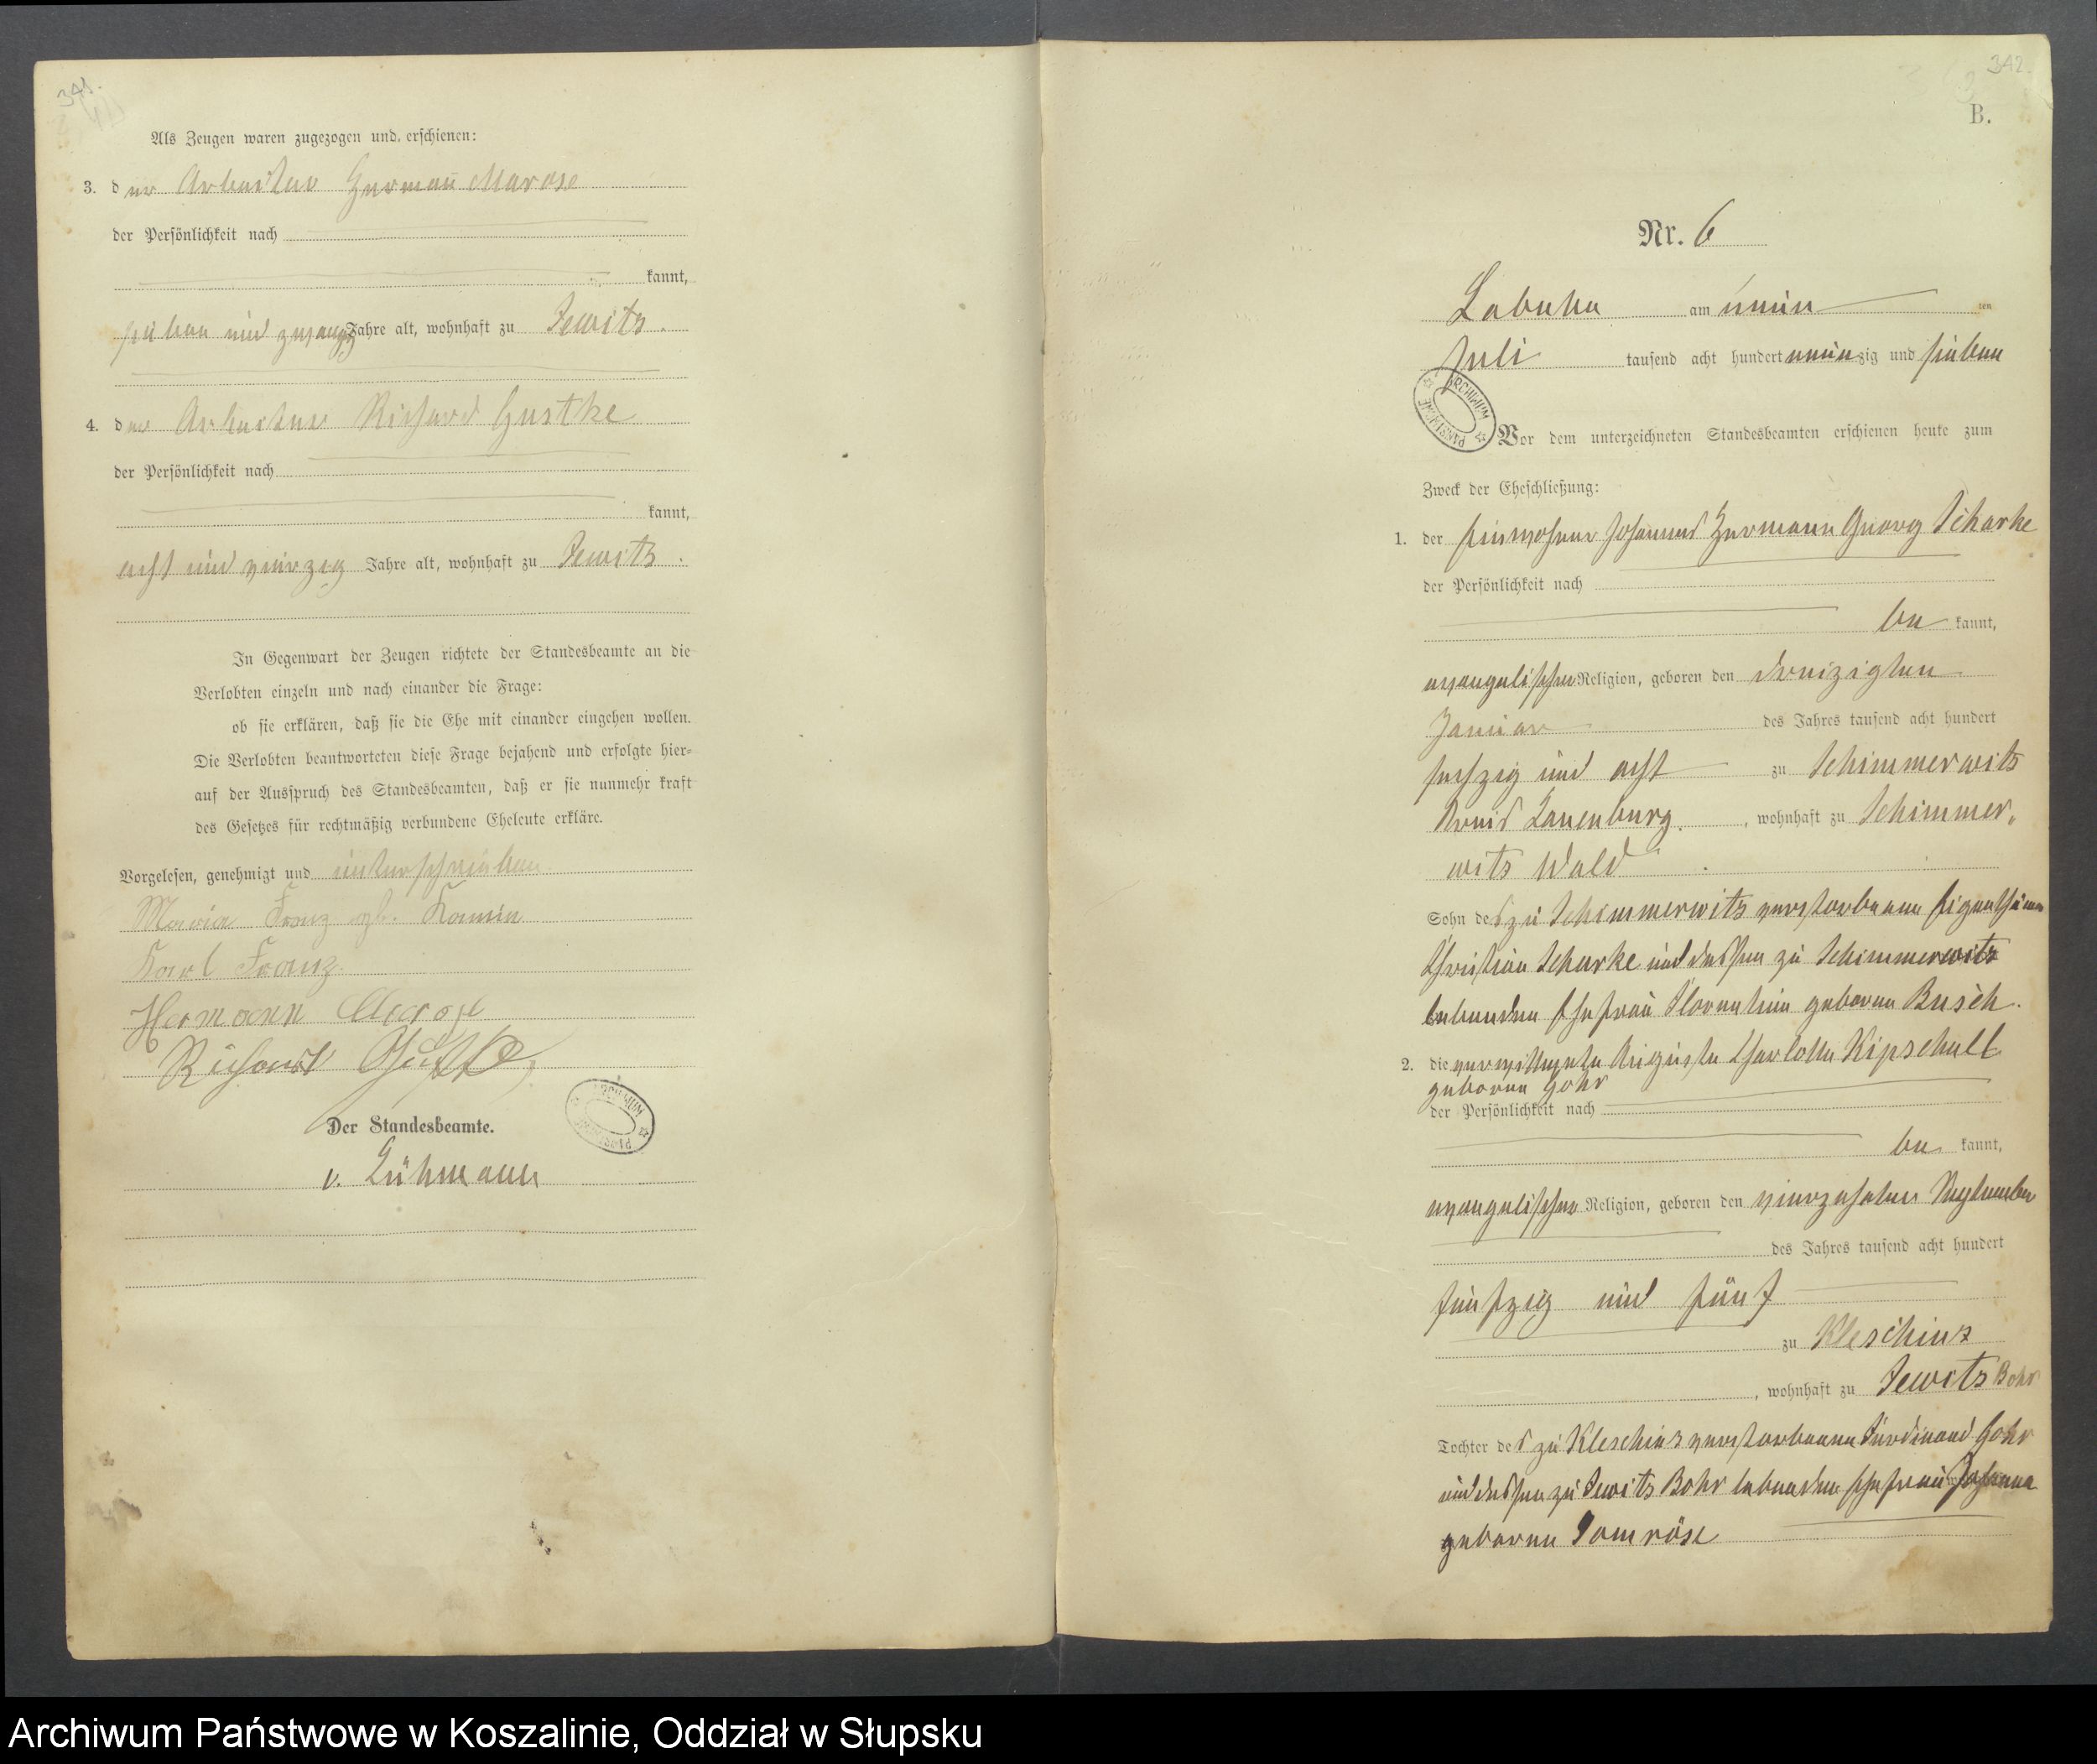 341.
Als Zeugen waren zugezogen und erschienen:
3. der Arbeiter Hermann Marose
der Persönlichkeit nach
kannt,
sieben und zwanzig Jahre alt, wohnhaft zu Jewitz.
4. der Arbeiter Richard Gustke
der Persönlichkeit nach
kannt,
acht und vierzig Jahre alt, wohnhaft zu Jewitz.
In Gegenwart der Zeugen richtete der Standesbeamte an die
Verlobten einzeln und nach einander die Frage:
ob sie erklären, daß sie die Ehe mit einander eingehen wollen.
Die Verlobten beantworteten diese Frage bejahend und erfolgte hier-
auf der Ausspruch des Standesbeamten, daß er sie nunmehr kraft
des Gesetzes für rechtmäßig verbundene Eheleute erkläre.
Vorgelesen, genehmigt und unterschrieben
Maria Franz geb. Kamin
Karl Franz
Hermann Marose
Richard Gustke
Der Standesbeamte.
v. Lühmann
ARCHIWUM PAŃSTWOWE
342.
B.
Nr. 6
Labuhn am neun ten
Juli tausend acht hundert neunzig und sieben
ARCHIWUM PAŃSTWOWE
Vor dem unterzeichneten Standesbeamten erschienen heute zum
Zweck der Eheschließung:
1. der Einwohner Johannes Hermann Georg Scharke
der Persönlichkeit nach
be kannt,
evangelischer Religion, geboren den dreizigten
Januar des Jahres tausend acht hundert
sechzig und acht zu Schimmerwitz
Kreis Lauenburg, wohnhaft zu Schimmer-
witz Wald
Sohn des zu Schimmerwitz verstorbenen Eigenthümer
Christian Scharke und dessen zu Schimmerwitz
lebenden Ehefrau Florentine geborne Busch.
2. die verwittwete Auguste Charlotte Kipschull
geborne Gohr
der Persönlichkeit nach
be kannt,
evangelischer Religion, geboren den vierzehnten September
des Jahres tausend acht hundert
fünfzig und fünf
zu Kleschinz
, wohnhaft zu Jewitz Bohr
Tochter des zu Kleschinz verstorbenen Ferdinand Gohr
und dessen zu Jewitz Bohr lebenden Ehefrau Johanna
geborne Pomröse
Archiwum Państwowe w Koszalinie, Oddział w Słupsku